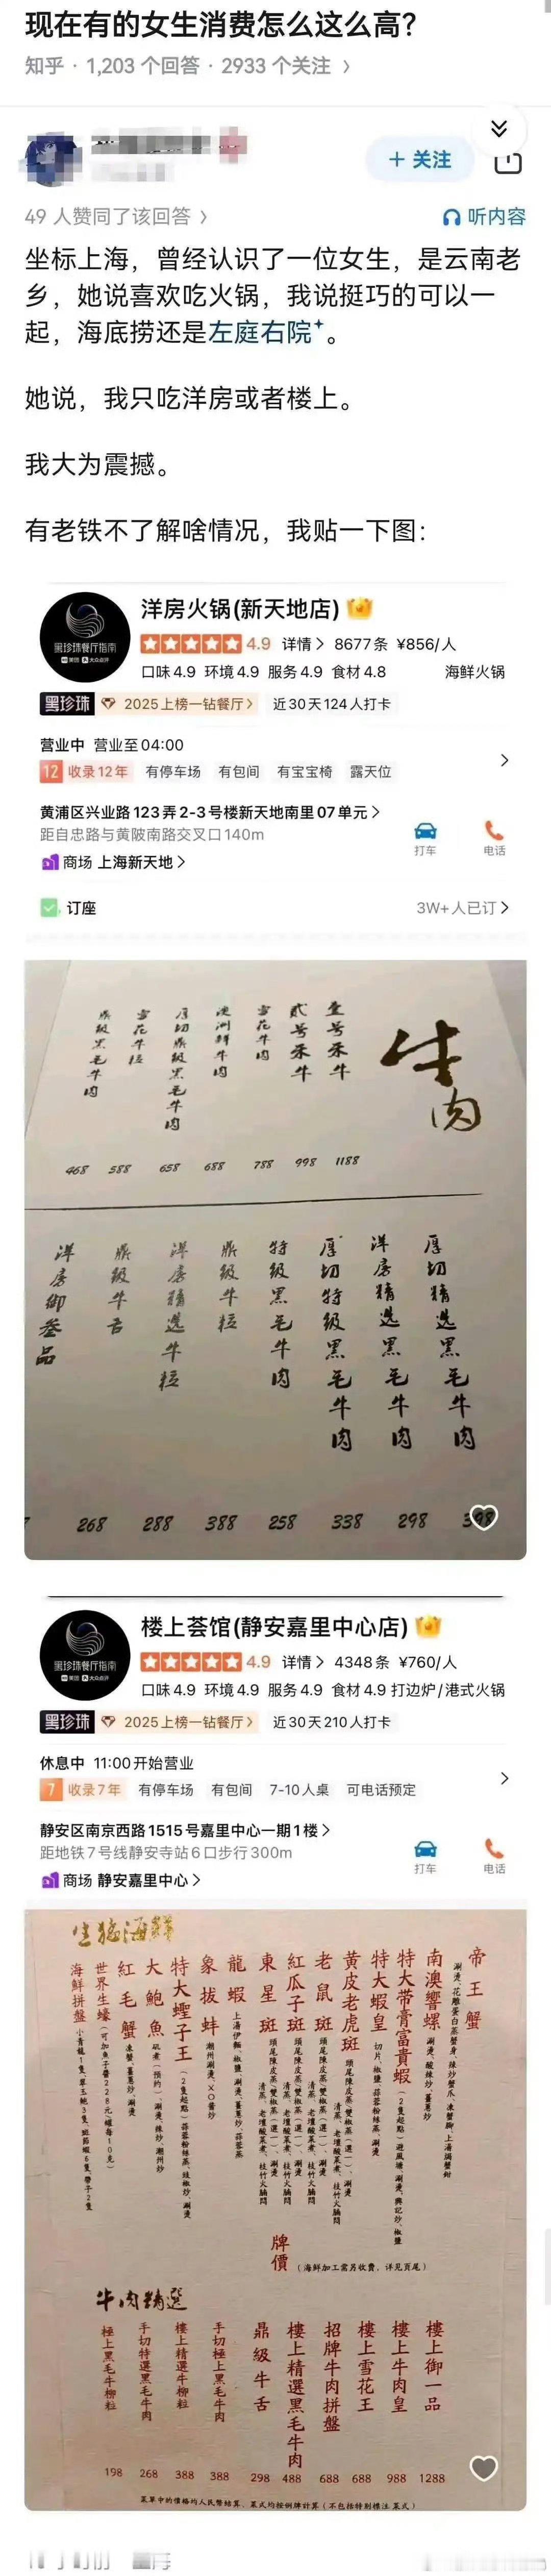 现在有的女生消费怎么这么高？
知乎 · 1,203 个回答 · 2933 个关注 >
+ 关注
49 人赞同了该回答 >
听内容
坐标上海，曾经认识了一位女生，是云南老
乡，她说喜欢吃火锅，我说挺巧的可以一
起，海底捞还是左庭右院。
她说，我只吃洋房或者楼上。
我大为震撼。
有老铁不了解啥情况，我贴一下图：
洋房火锅(新天地店)
4.9 详情> 8677条 ¥856/人
口味4.9 环境4.9 服务4.9 食材4.8 海鲜火锅
黑珍珠餐厅指南
美团 大众点评
黑珍珠 2025上榜一钻餐厅> 近30天124人打卡
营业中 营业至04:00
12 收录12年 有停车场 有包间 有宝宝椅 露天位
黄浦区兴业路123弄2-3号楼新天地南里07单元>
距自忠路与黄陂南路交叉口140m
打车 电话
商场 上海新天地>
订座 3W+人已订>
牛肉
壹号禾牛 1188
贰号禾牛 998
雪花牛肉 788
澳洲鲜牛肉 688
厚切鼎级黑毛牛肉 658
雪花牛粒 588
鼎级黑毛牛肉 468
厚切精选黑毛牛肉 398
洋房精选黑毛牛肉 298
厚切特级黑毛牛肉 338
特级黑毛牛肉 258
鼎级牛粒 388
洋房精选牛粒 288
鼎级牛舌 268
洋房御叁品
楼上荟馆(静安嘉里中心店)
4.9 详情> 4348条 ¥760/人
口味4.9 环境4.9 服务4.9 食材4.9 打边炉/港式火锅
黑珍珠餐厅指南
美团 大众点评
黑珍珠 2025上榜一钻餐厅> 近30天210人打卡
休息中 11:00开始营业
7 收录7年 有停车场 有包间 7-10人桌 可电话预定
静安区南京西路1515号嘉里中心一期1楼>
距地铁7号线静安寺站6口步行300m
打车 电话
商场 静安嘉里中心>
生猛海鮮
帝王蟹
南澳響螺
特大帶膏富貴蝦
特大蝦皇
黃皮老虎斑
老鼠斑
紅瓜子斑
東星斑
龍蝦
象拔蚌
特大蟶子王
大鮑魚
紅毛蟹
世界生蠔
海鮮拼盤
牌價（海鮮加工需另收費，详见頁尾）
牛肉精選
樓上御一品 1288
樓上牛肉皇 988
樓上雪花王 688
招牌牛肉拼盤 688
樓上精選黑毛牛肉 488
鼎級牛舌 298
手切極上黑毛牛肉 388
樓上精選牛柳粒 388
手切特選黑毛牛肉 268
極上黑毛牛柳粒 198
菜單中的價格均人民幣結算，菜式均按例牌計算（不包括特别標注菜式）